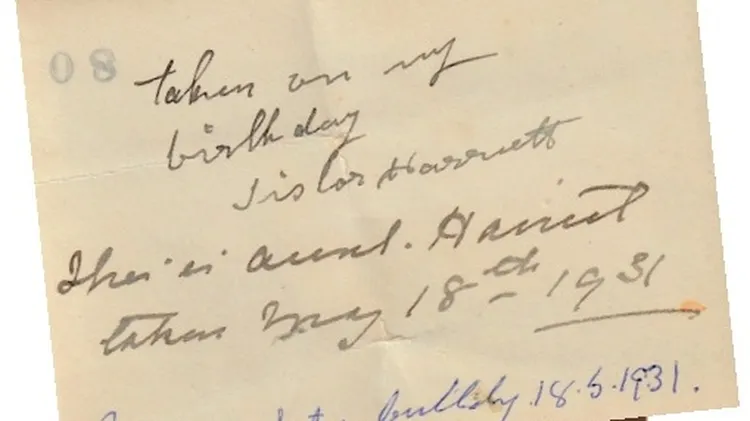 08
taken on my
birthday
Sister Harriett
This is aunt. Harriet
taken May 18th 1931
18.5.1931.